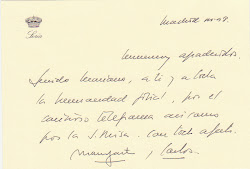 Soria
Madrid
muy agradecidos.
Querido Mariano, a ti y a toda
la hermandad filial, por el
cariñoso telegrama
por la S. Misa. Con todo afecto.
Margarita y Carlos.